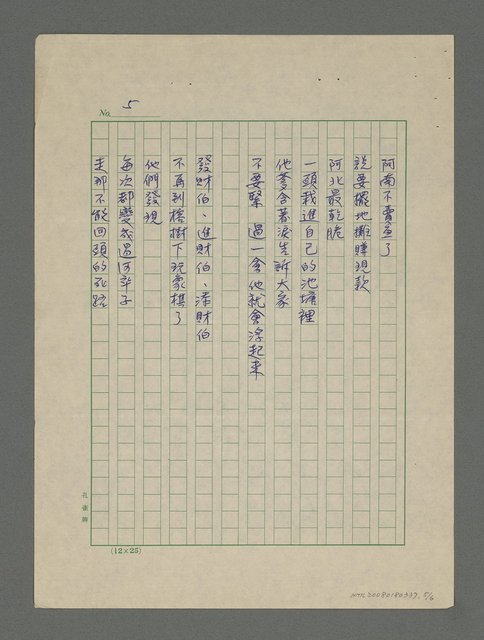 No. 5
阿南不賣魚了
說要擺地攤賺現款
阿北最乾脆
一頭栽進自己的池塘裡
他爹含著淚告訴大家
不要緊 過一會他就會浮起來
發財伯、進財伯、添財伯
不再到榕樹下玩象棋了
他們發現
每次都變成過河卒子
走那不能回頭的死路
孔雀牌
(12×25)